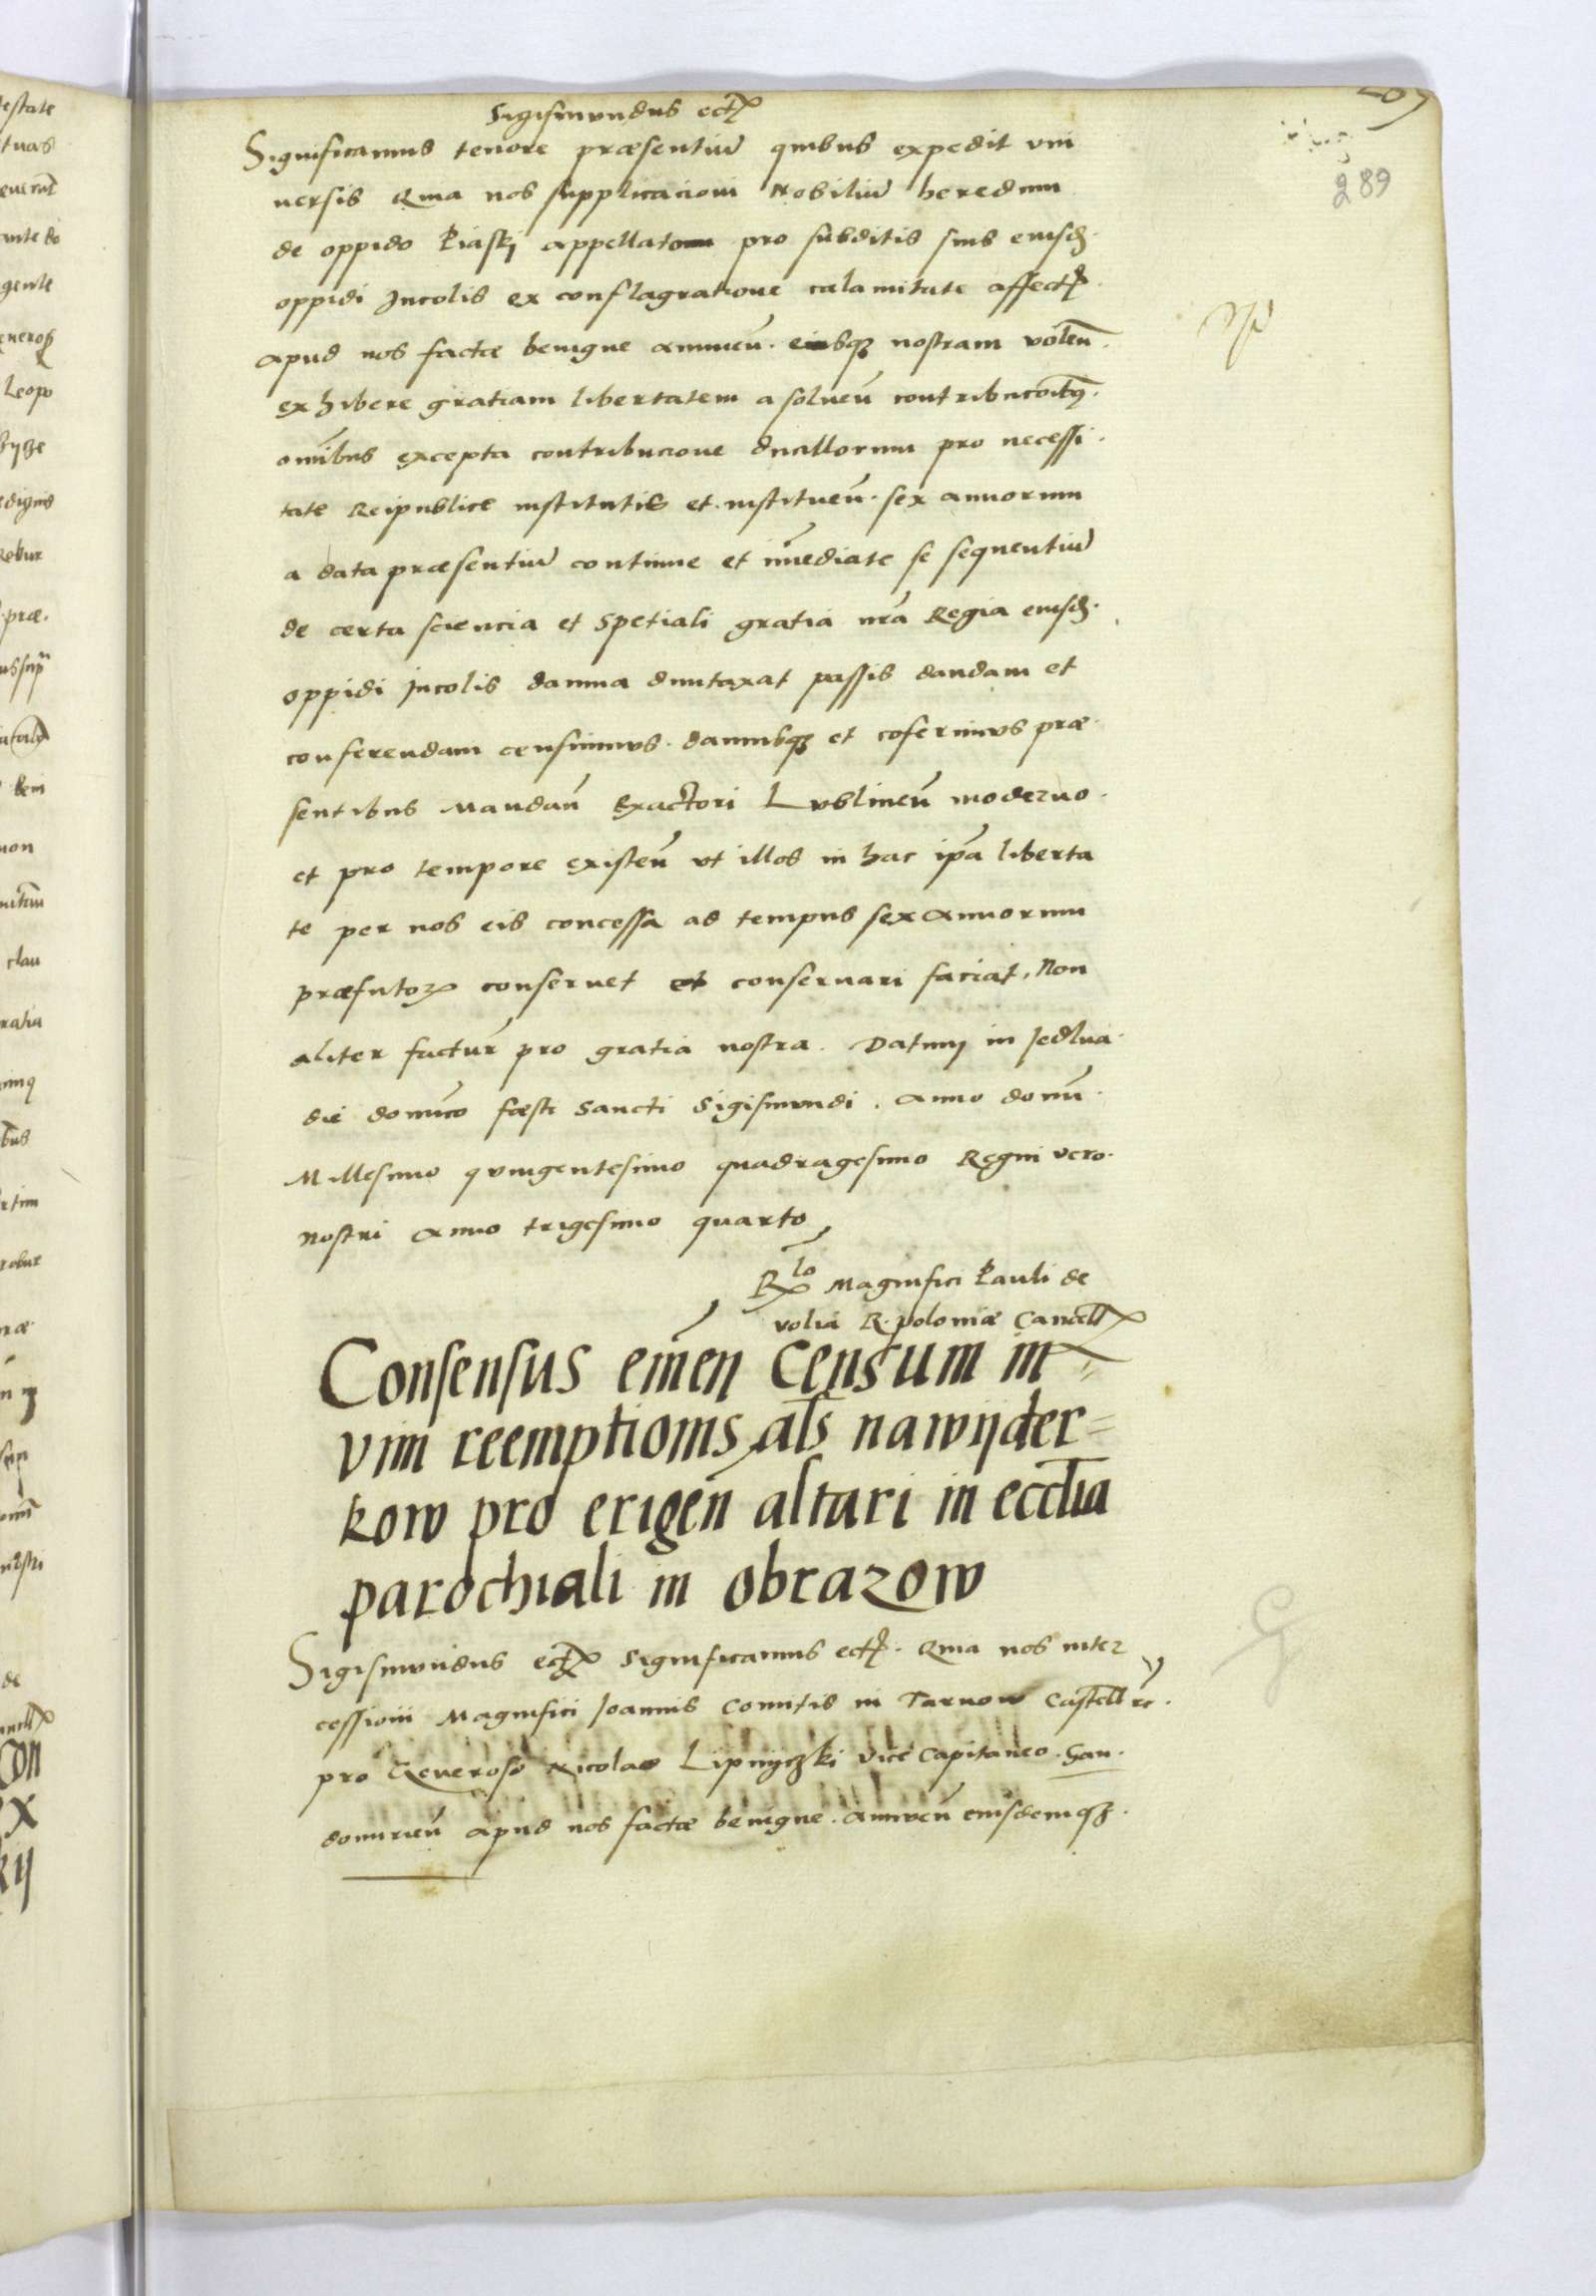 Sigismundus ect
289
Significamus tenore præsentiū quibus expedit vni
uersis Quia nos supplicacioni Nobiliū heredum
de oppido Piaski appellato pro subditis suis eiusd.
oppidi Incolis ex conflagratione calamitate affect.
apud nos factæ benigne annuen̄. eisq; nostram volen̄.
exhibere gratiam libertatem a soluen̄ contribucōibq.
omībus excepta contribucione ducillorum pro necessi.
tate Reipublice institutis et instituen̄. sex annorum
a data præsentiū continue et īmediate se sequentiū
de certa sciencia et spetiali gratia nrā Regia eiusd.
oppidi Incolis damna dumtaxat passis dandam et
conferendam censuimus. damusq; et coferimus præ.
sentibus Mandan̄ Exactori Lublinen̄ moderno.
et pro tempore existen̄ vt illos in hac ip̄a liberta
te per nos eis concessa ad tempus sex annorum
præfatoꝝ conseruet et conseruari faciat, Non
aliter factur̄ pro gratia nostra. Datum in Jedlna.
die domīco festi sancti Sigismundi. anno domī.
Millesimo quingentesimo quadragesimo Regni vero.
nostri anno trigesimo quarto
Rlo Magnifici Pauli de
volia R. poloniæ Cancell
Consensus emen̄ Censum in
vim reemptionis als nawijder=
kow pro erigen̄ altari in eccl̄ia
parochiali in obrazow
Sigismundus ect Significamus ect. Quia nos inter
cessioni Magnifici Joannis Comitis in Tarnow Castell rc.
pro Generoso Nicolao Lipnyczki vice Capitaneo. San.
domirien̄ apud nos factæ benigne. annuen̄ eiusdemq;.